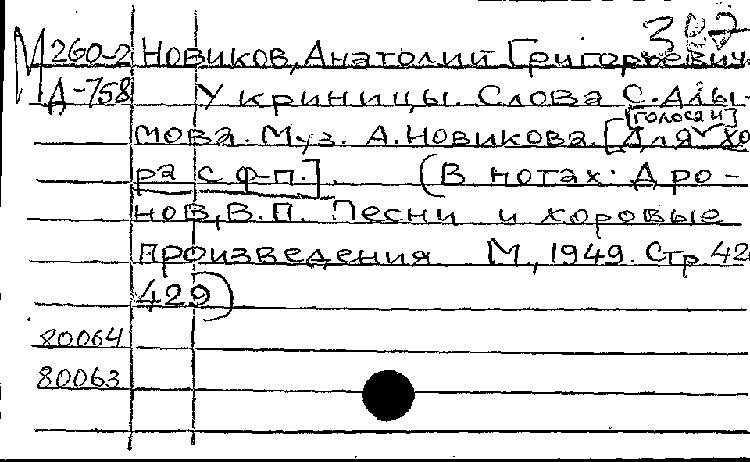 307
М 260-2 Новиков, Анатолий Григорьевич.
Д-758 У криницы. Слова С. Алы-
мова. Муз. А. Новикова. [Для [голоса и] хо
ра с ф-п.]. (В нотах: Дро-
нов, В.П. Песни и хоровые
произведения. М., 1949. Стр 42
429)
80064
80063